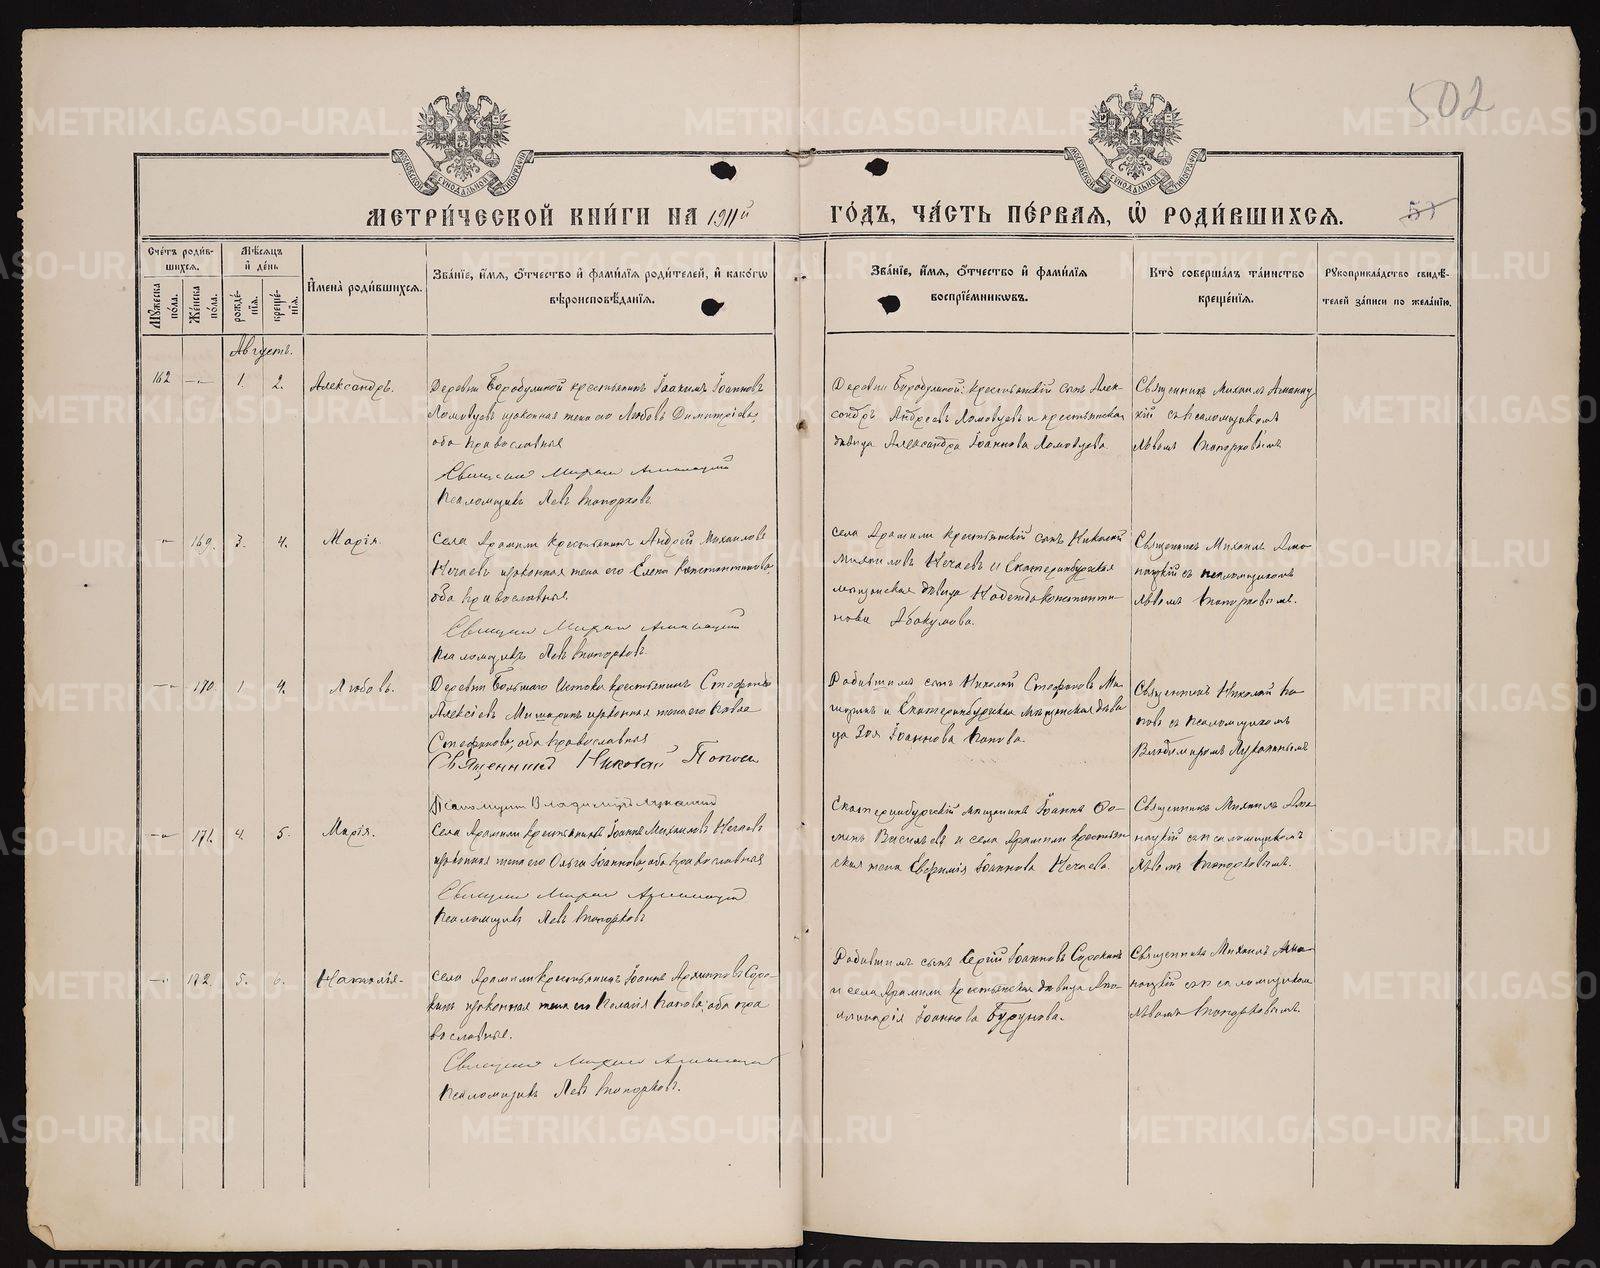 502
МЕТРИ́ЧЕСКОЙ КНИ́ГИ НА 1911й ГО́ДЪ, ЧА́СТЬ ПЕ́РВАЯ, Ѡ҆ РОДИ́ВШИХСЯ.
57
Сче́тъ роди́вшихся.
Мꙋ́жеска по́ла.
Же́нска по́ла.
Мѣ́сяцъ и҆ де́нь
рожде́нїя.
креще́нїя.
И҆мена̀ роди́вшихся.
Зва́нїе, и҆́мя, ѻ҆́тчество и҆ фами́лїя роди́телей, и҆ како́гѡ вѣроисповѣ́данїя.
Зва́нїе, и҆́мя, ѻ҆́тчество и҆ фами́лїя воспрїе́мникѡвъ.
Кто̀ соверша́лъ та́инство креще́нїя.
Рꙋкоприкла́дство свидѣ́телей за́писи по жела́нїю.
Августъ.
162 —"— 1. 2. Александръ.
Деревни Бородулиной крестьянинъ Іоакимъ Іоанновъ
Ломовцевъ и законная жена его Любовь Димитріева,
оба православные
Священникъ Михаил
Псаломщикъ Левъ Топорковъ.
Деревни Бородулиной: крестьянскій сынъ Алек-
сандръ Андреевъ Ломовцевъ и крестьянская
дѣвица Александра Іоаннова Ломовцева.
Священникъ Михаилъ
съ псаломщикомъ
Львомъ Топорковымъ
—"— 169. 3. 4. Марія.
Села Арамили крестьянинъ Андрей Михаиловъ
Нечаевъ и законная жена его Елена Константинова,
оба православные
Священникъ Михаил
Псаломщикъ Левъ Топорковъ.
Села Арамили крестьянскій сынъ Николай
Михаиловъ Нечаевъ и Екатеринбургская
мѣщанская дѣвица Надежда Константи-
нова Абакумова.
Священникъ Михаилъ
съ псаломщикомъ
Львомъ Топорковымъ.
—"— 170. 1. 4. Любовь.
Деревни Большаго Истока крестьянинъ Стефанъ
Алексіевъ и законная жена его
Стефанова, оба православные
Священникъ Николай Попов
Псаломщикъ Владиміръ
Родившимъ сынъ Николай Стефановъ Ми-
и Екатеринбургская мѣщанская дѣви-
ца Зоя Іоаннова Попова.
Священникъ Николай По-
повъ съ псаломщикомъ
Владиміромъ
—"— 171. 4. 5. Марія.
Села Арамили крестьянинъ Іоаннъ Михаиловъ Нечаевъ
и законная жена его Ольга Іоаннова, оба православные
Священникъ Михаил
Псаломщикъ Левъ Топорковъ
Екатеринбургскій мѣщанинъ Іоаннъ Фо-
минъ Васильевъ и села Арамили крестьян-
ская жена Евфимія Іоаннова Нечаева.
Священникъ Михаилъ
съ псаломщикомъ
Львомъ Топорковымъ.
—"— 172. 5. 6. Наталія.
Села Арамили крестьянинъ Іоаннъ Архипповъ Соро-
кинъ и законная жена его Пелагія Павлова, оба пра-
вославные.
Священникъ Михаил
Псаломщикъ Левъ Топорковъ.
Родившимъ сынъ Сергій Іоанновъ Сорокинъ
и села Арамили крестьянская дѣвица Апо-
линарія Іоаннова Бурунова.
Священникъ Михаилъ
съ псаломщикомъ
Львомъ Топорковымъ.
METRIKI.GASO-URAL.RU